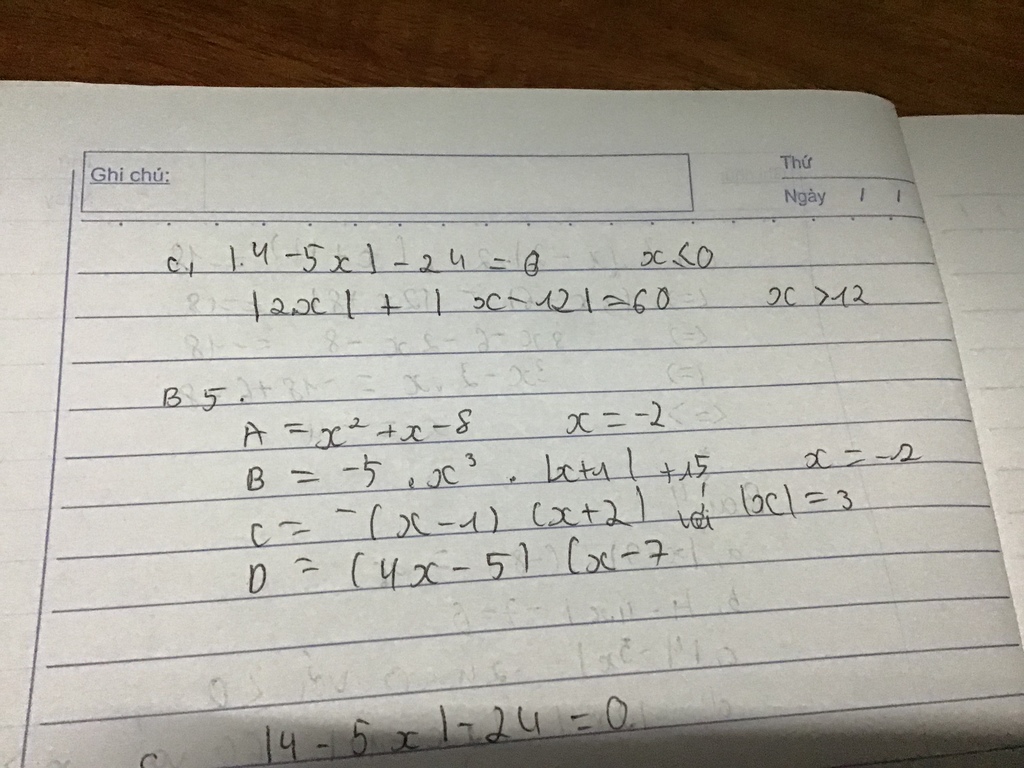 Ghi chú:
Thứ
Ngày / /
c, |4 - 5x| - 24 = 0 x < 0
|2x| + | x - 12| = 60 x > 12
B 5.
A = x² + x - 8 x = -2
B = -5 . x³ . |x+1| + 15 x = -2
C = -(x-1) (x+2) với |x| = 3
D = (4x - 5) (x - 7
c |4 - 5x| - 24 = 0